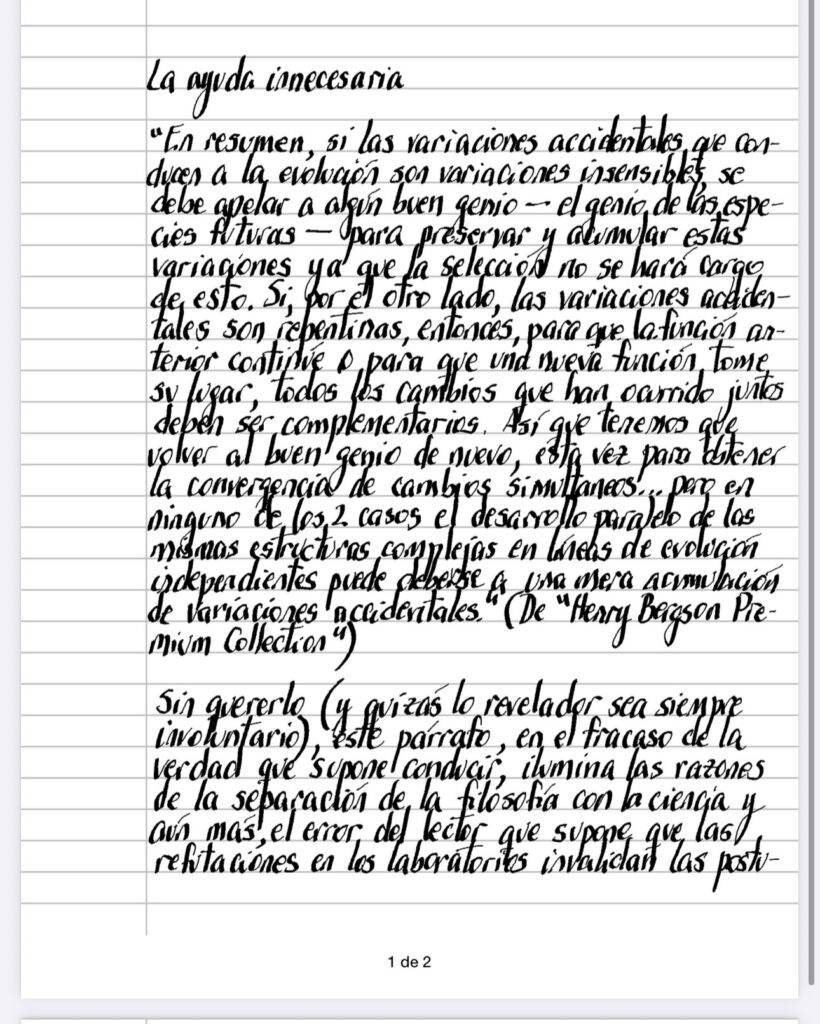 La ayuda innecesaria
"En resumen, si las variaciones accidentales que con-
ducen a la evolución son variaciones insensibles, se
debe apelar a algún buen genio — el genio de las espe-
cies futuras — para preservar y acumular estas
variaciones ya que la selección no se hará cargo
de esto. Si, por el otro lado, las variaciones acciden-
tales son repentinas, entonces, para que la función an-
terior continúe o para que una nueva función tome
su lugar, todos los cambios que han ocurrido juntos
deben ser complementarios. Así que tenemos que
volver al buen genio de nuevo, esta vez para obtener
la convergencia de cambios simultáneos... pero en
ninguno de los 2 casos el desarrollo paralelo de las
mismas estructuras complejas en líneas de evolución
independientes puede deberse a una mera acumulación
de variaciones accidentales." (De "Henry Bergson Pre-
mium Collection")
Sin quererlo (y quizás lo revelador sea siempre
involuntario), este párrafo, en el fracaso de la
verdad que supone conducir, ilumina las razones
de la separación de la filosofía con la ciencia y
aún más, el error del lector que supone que las
refutaciones en los laboratorios invalidan las postu-
1 de 2